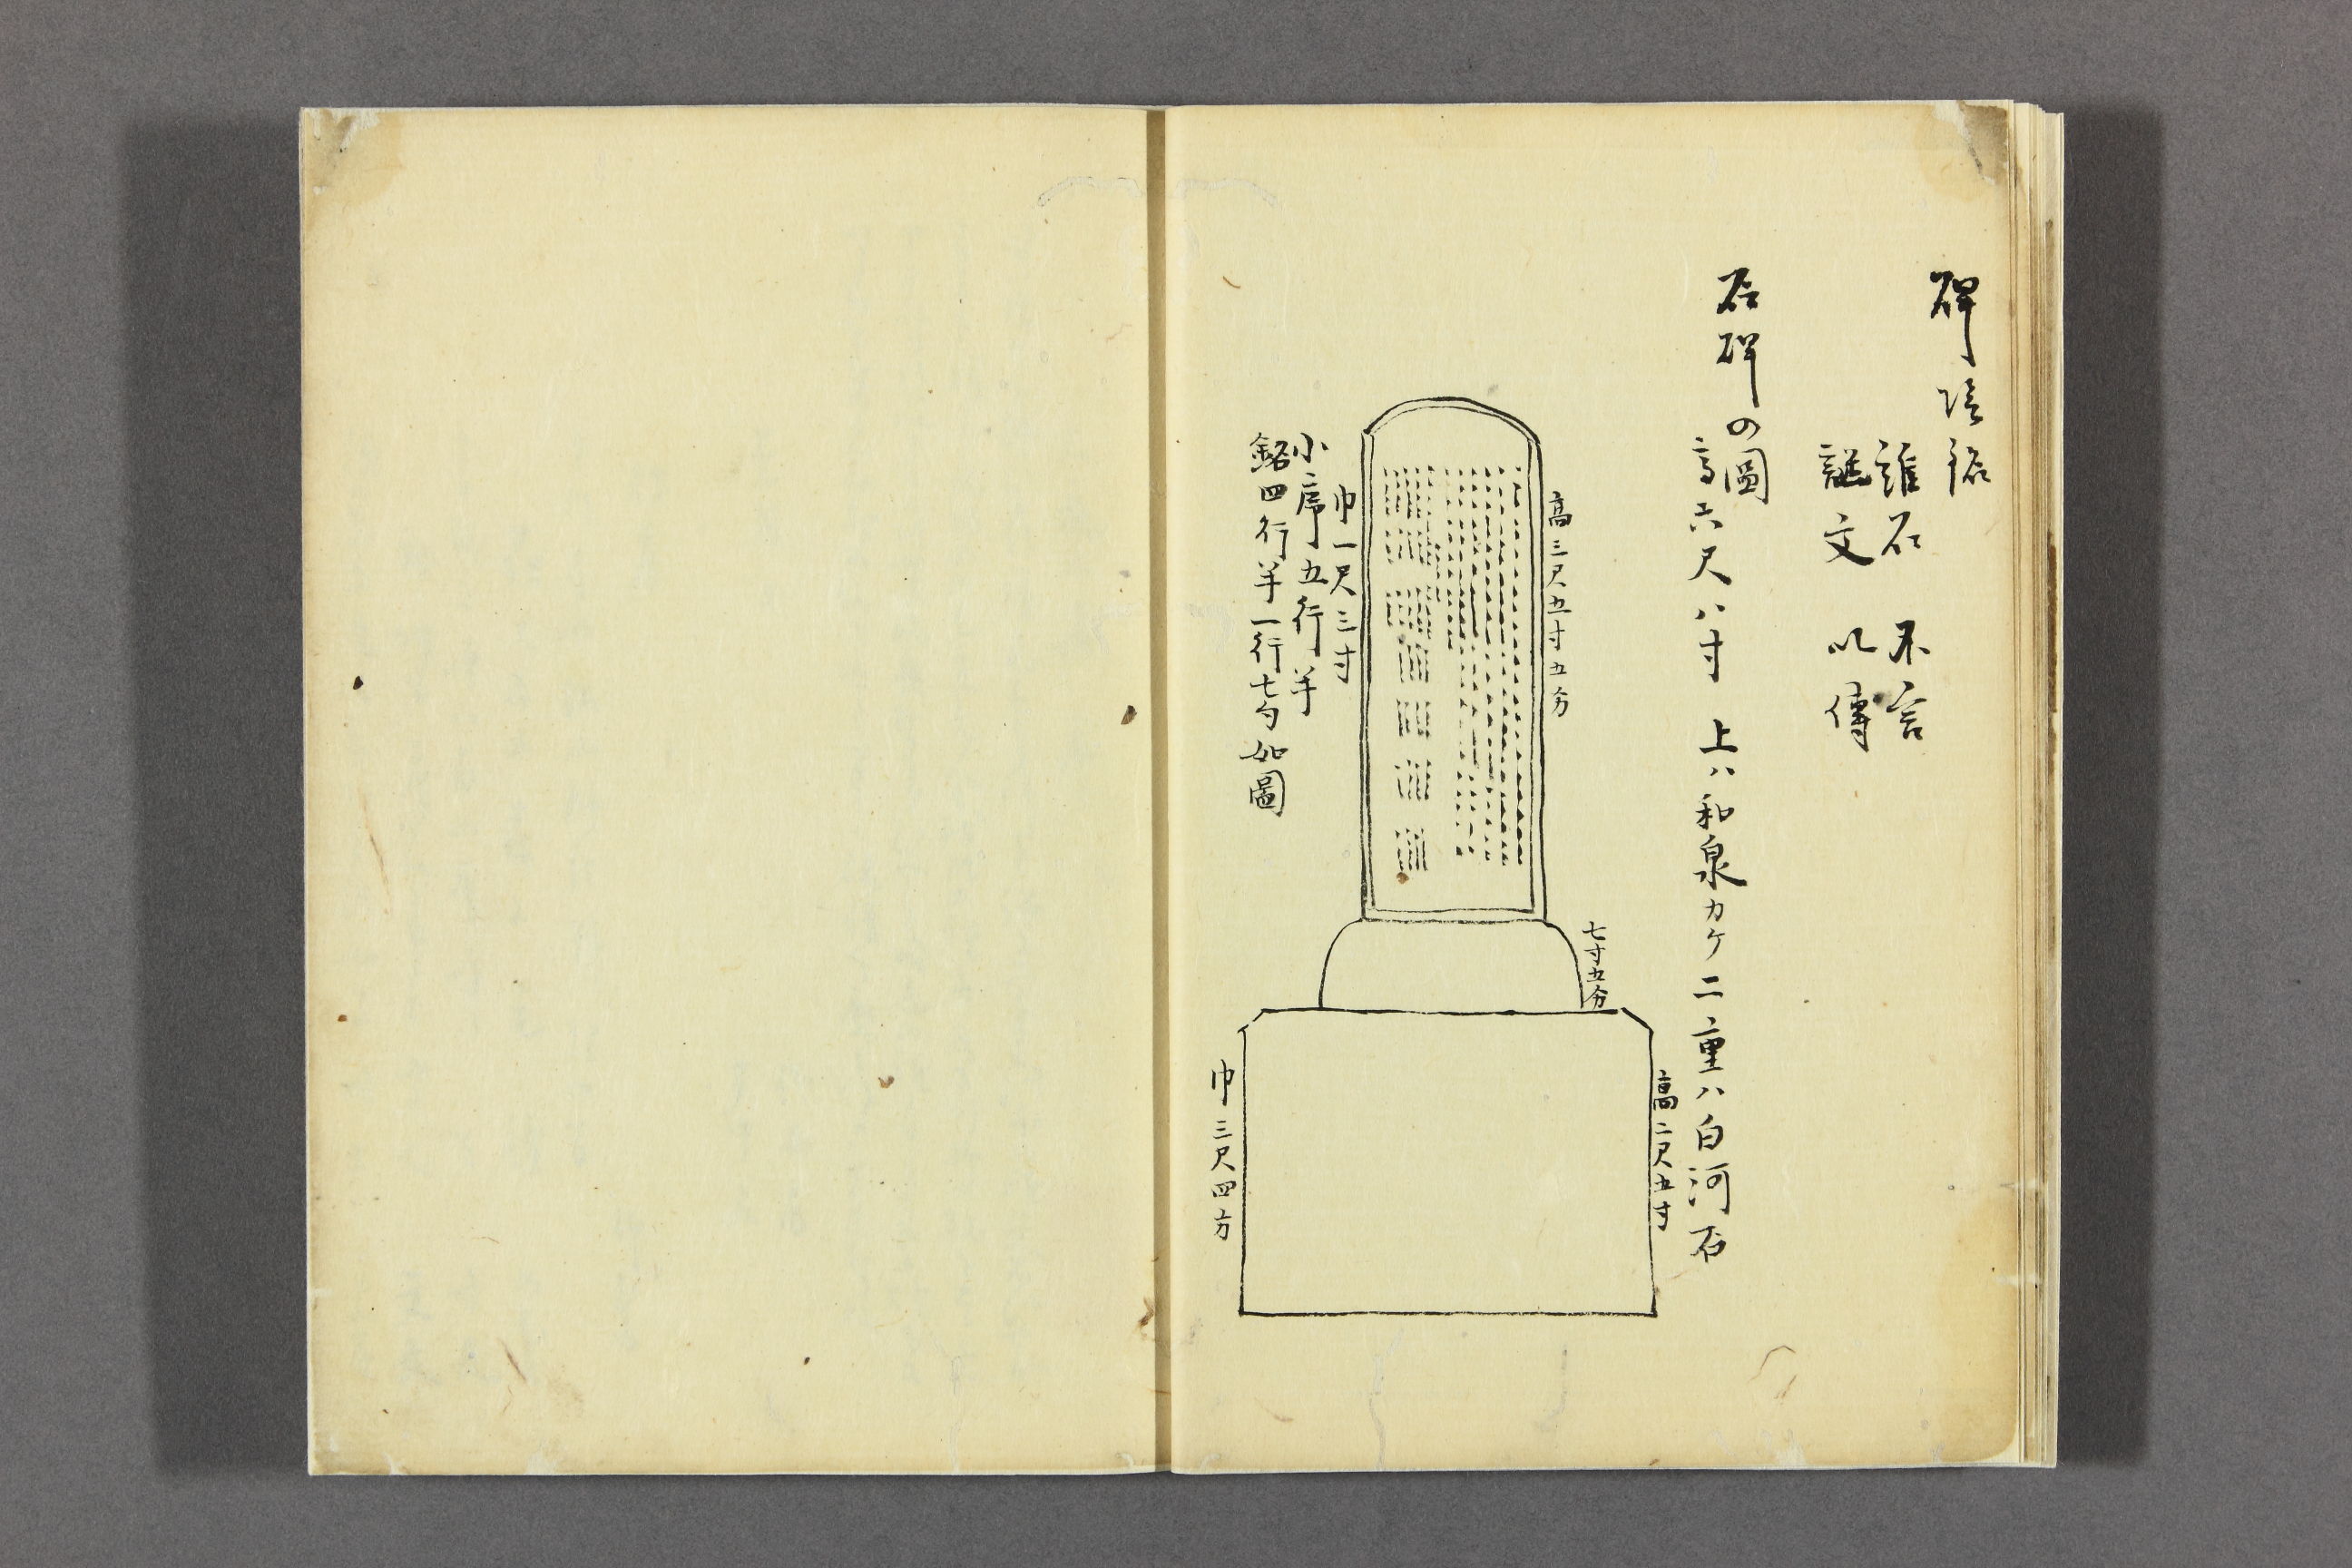 碑陰銘
石不言
文以傳
石碑の圖
高六尺八寸 上ハ和泉カケ二重ハ白河石
高三尺五寸五分
七寸五分
高二尺五寸
巾一尺三寸
小序五行半
銘四行半一行七句如圖
巾三尺四方